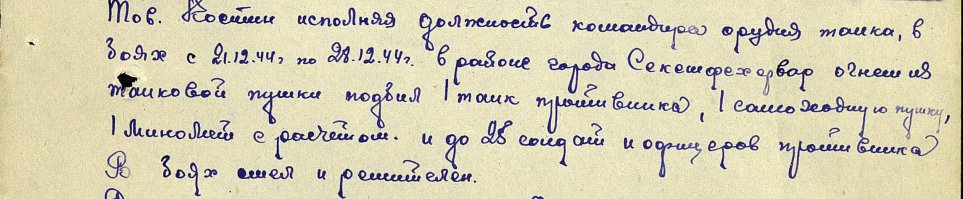 Тов. Костин исполняя должность командира орудия танка, в
боях с 21.12.44г. по 28.12.44г. в районе города Секешфехервар огнем из
танковой пушки подбил 1 танк противника, 1 самоходную пушку,
1 миномет с расчетом. и до 28 солдат и офицеров противника
В боях смел и решителен.